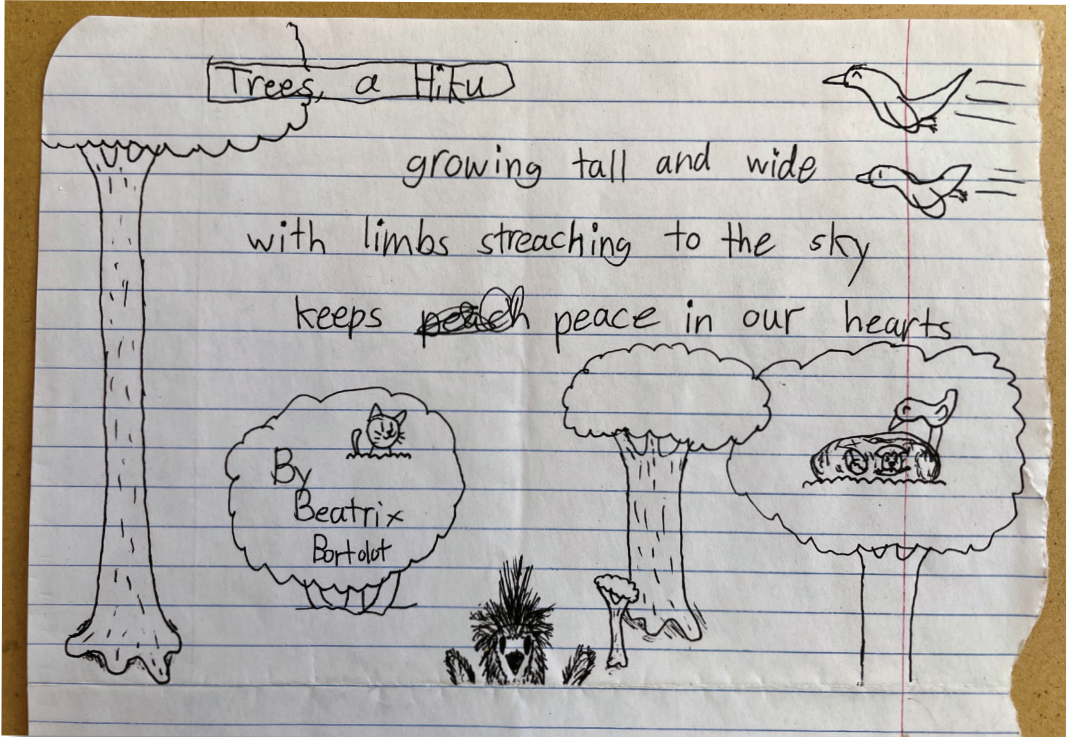 Trees, a Hiku
growing tall and wide
with limbs streaching to the sky
keeps peace in our hearts
By
Beatrix
Bortolot